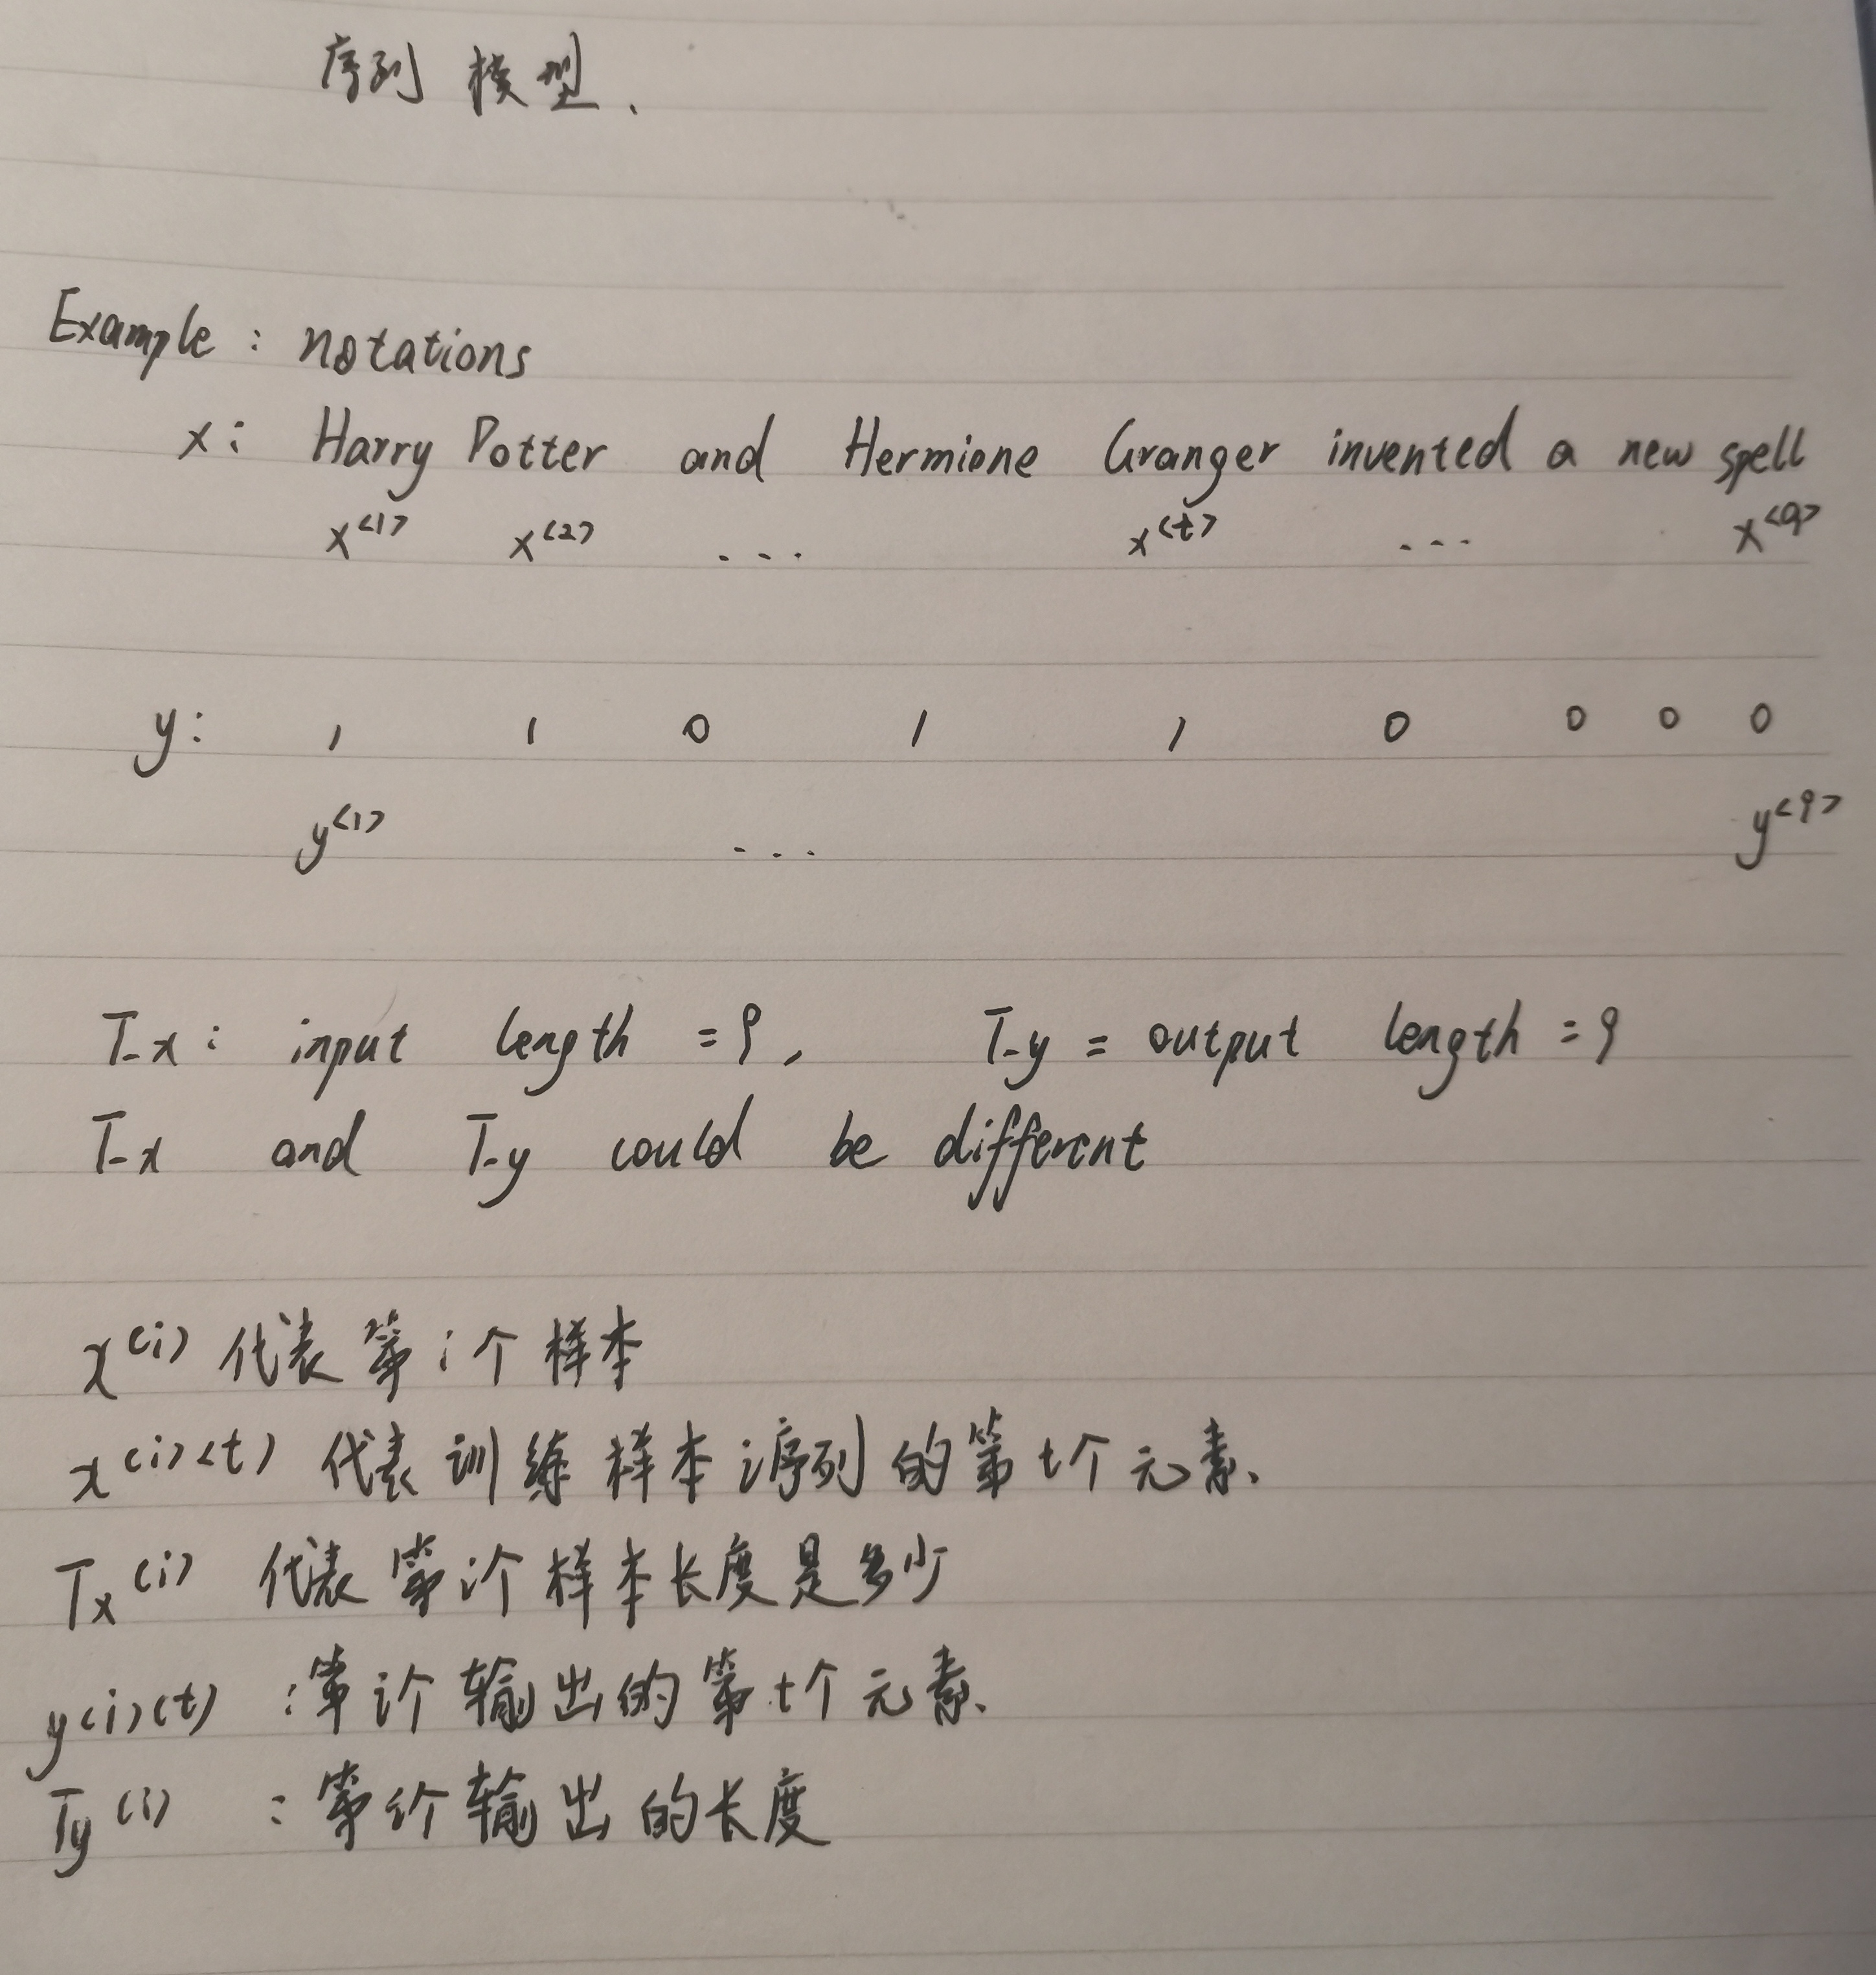 序列 模型、
Example : notations
x: Harry Potter and Hermione Granger invented a new spell
x<1> x<2> ... x<t> ... x<9>
y: 1 1 0 1 1 0 0 0 0
y<1> ... y<9>
T-x: input length = 9, T-y = output length = 9
T-x and T-y could be different
x(i) 代表第i个样本
x(i)<t) 代表训练样本i序列的第t个元素、
Tx(i) 代表第i个样本长度是多少
y(i)(t) :第i个输出的第t个元素、
Ty(i) : 第i个输出的长度